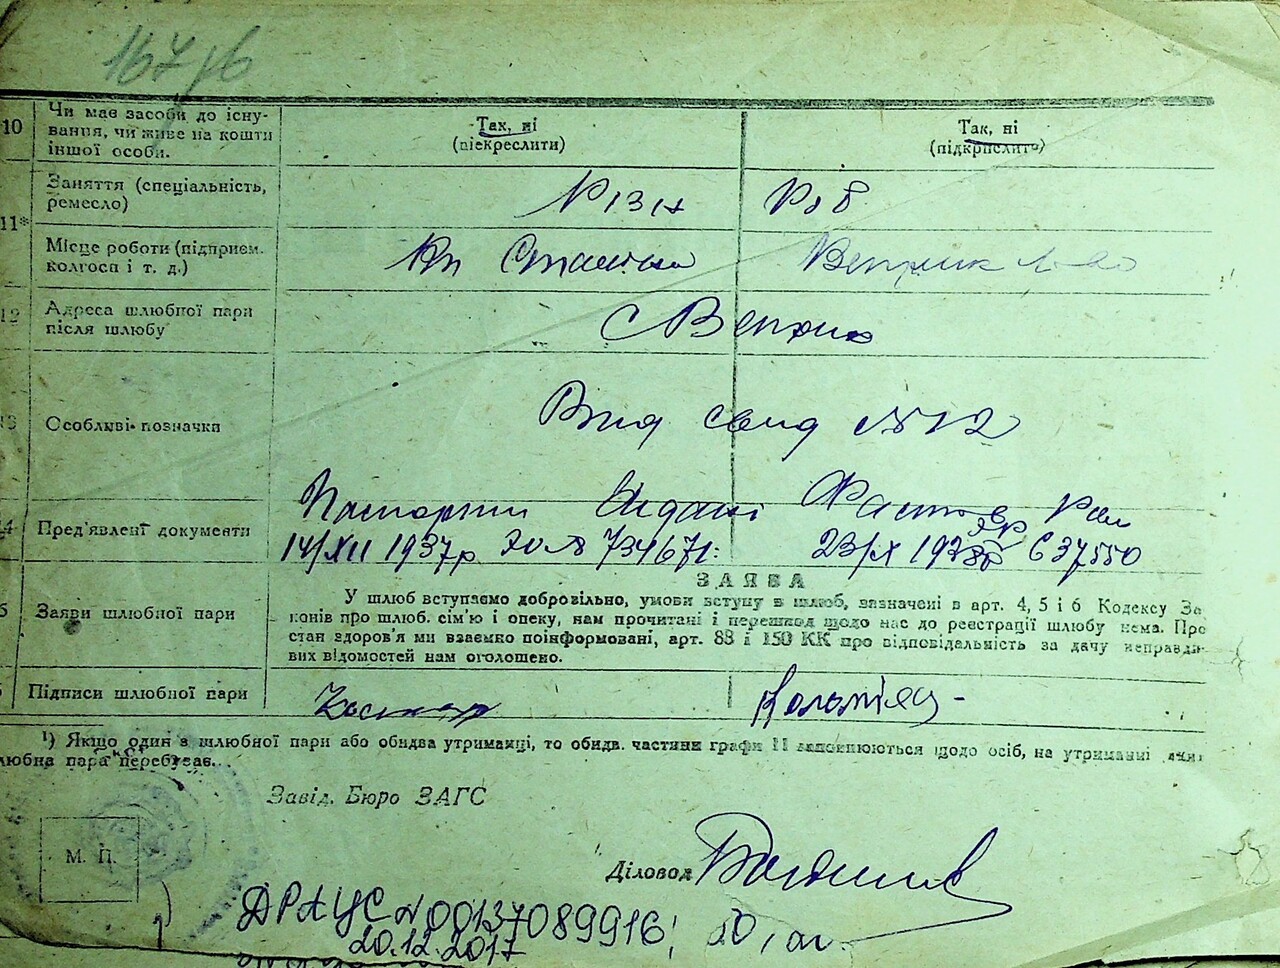 167
10 Чи має засоби до існу-
вання, чи живе на кошти
іншої особи.
Так, ні
(піскреслити)
Так, ні
(підкрислить)
11* Заняття (спеціальність,
ремесло)
Різн
Роб
Місце роботи (підприєм.
колгосп і т. д.)
Кп
Веприк
12 Адреса шлюбної пари
після шлюбу
с Веприк
13 Особливі позначки
Вид свид №12
14 Пред'явлені документи
Паспорти видані Фастов Рай
14/XII 1937р 734671 23/X 637550
ЗАЯВА
Заяви шлюбної пари
У шлюб вступаємо добровільно, умови вступу в шлюб, зазначені в арт. 4, 5 і 6 Кодексу За
конів про шлюб. сім'ю і опеку, нам прочитані і перешкод щодо нас до реєстрації шлюбу нема. Про
стан здоров'я ми взаємно поінформовані, арт. 88 і 150 КК про відповідальність за дачу неправди-
вих відомостей нам оголошено.
Підписи шлюбної пари
¹) Якщо один з шлюбної пари або обидва утриманці, то обидв. частини графи 11 заповнюються щодо осіб, на утриманні яких
любна пара перебуває.
Завід. Бюро ЗАГС
М. П.
Діловод
ДРАЦС N 00137089916;
20.12.2017